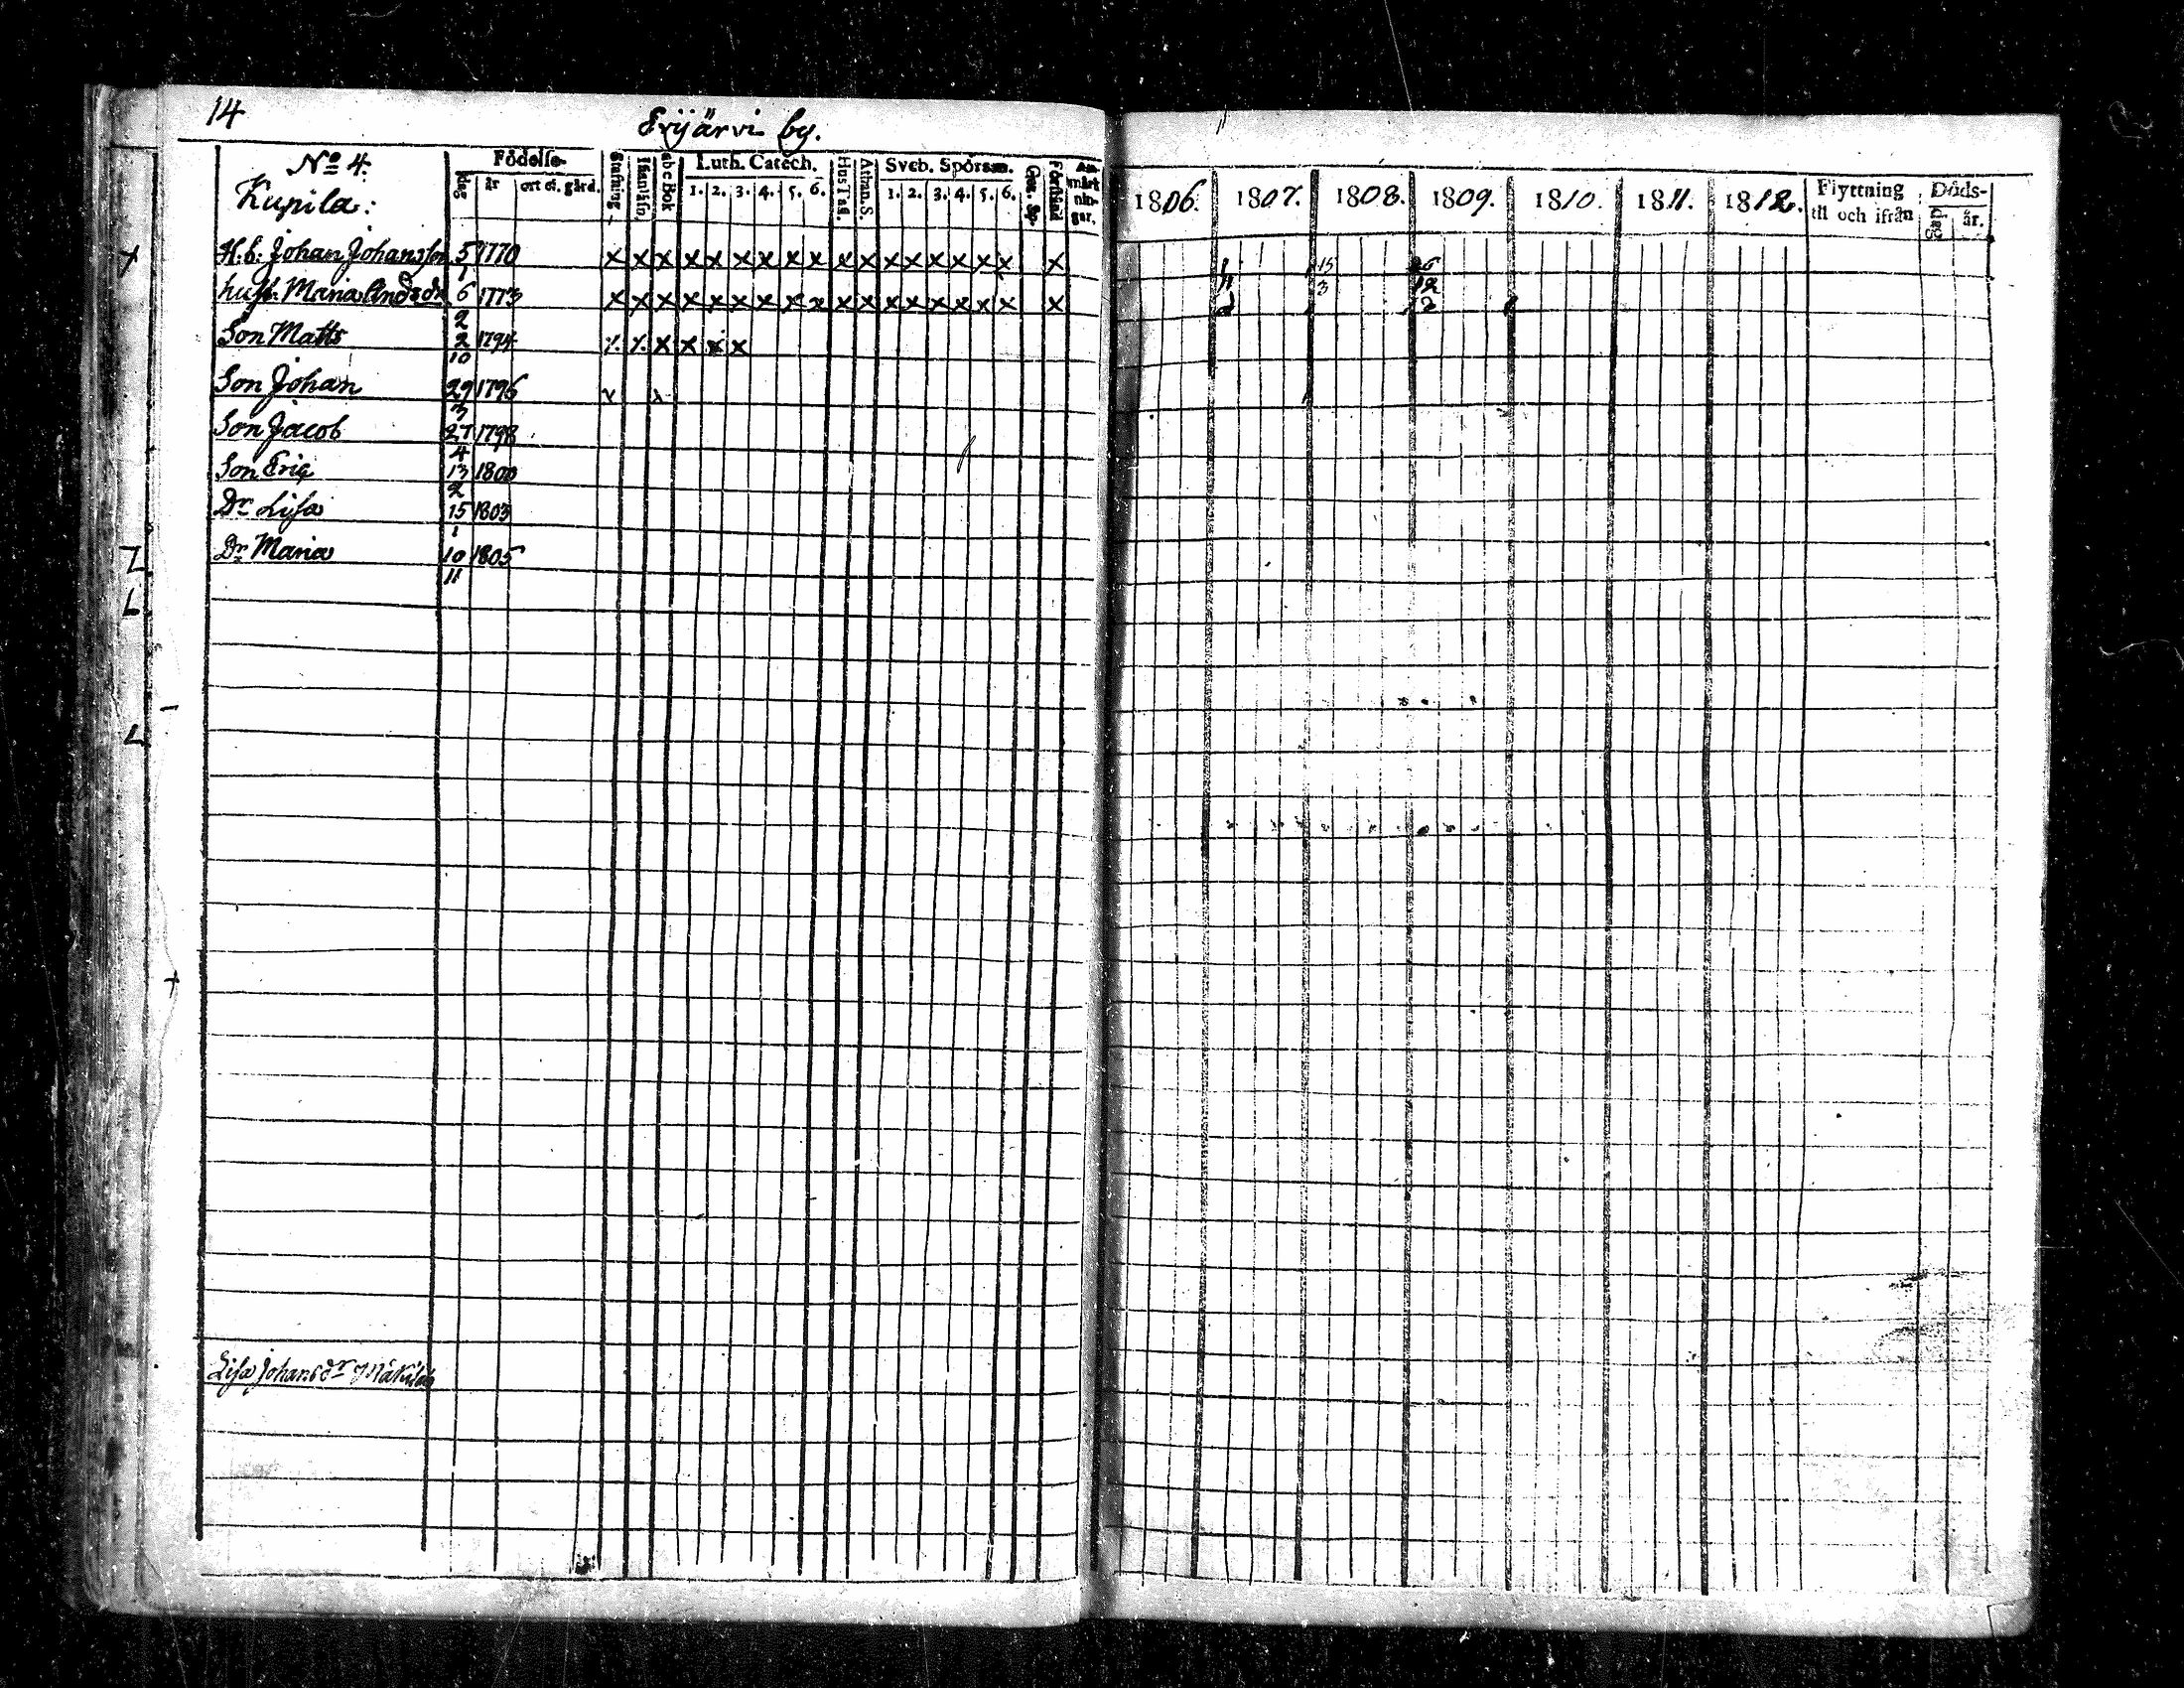 14
Evijärvi by.
No 4.
Kupila:
Födelse-
dag år ort el. gård.
Stafning
Innanläsn.
abc Bok
Luth. Catech.
1. 2. 3. 4. 5. 6.
Hus Taf.
Athan. S.
Sveb. Spörsm.
1. 2. 3. 4. 5. 6.
Förstånd
An-
märk
nin-
gar.
1806. 1807. 1808. 1809. 1810. 1811. 1812.
Flyttning
till och ifrån
Döds-
dag år.
H.b. Johan Johansson 5/1 1770 x x x x x x x x x x x x x x x x x x
hust. Maria Andsdr 6/2 1773 x x x x x x x x x x x x x x x x x x
Son Matts 2/10 1794 x x x x
Son Johan 29/3 1796
Son Jacob 27/4 1798
Son Eric 13/2 1800
Dr Lisa 15/1 1803
Dr Maria 10/11 1805
15
3
12
Lisa Johansdr